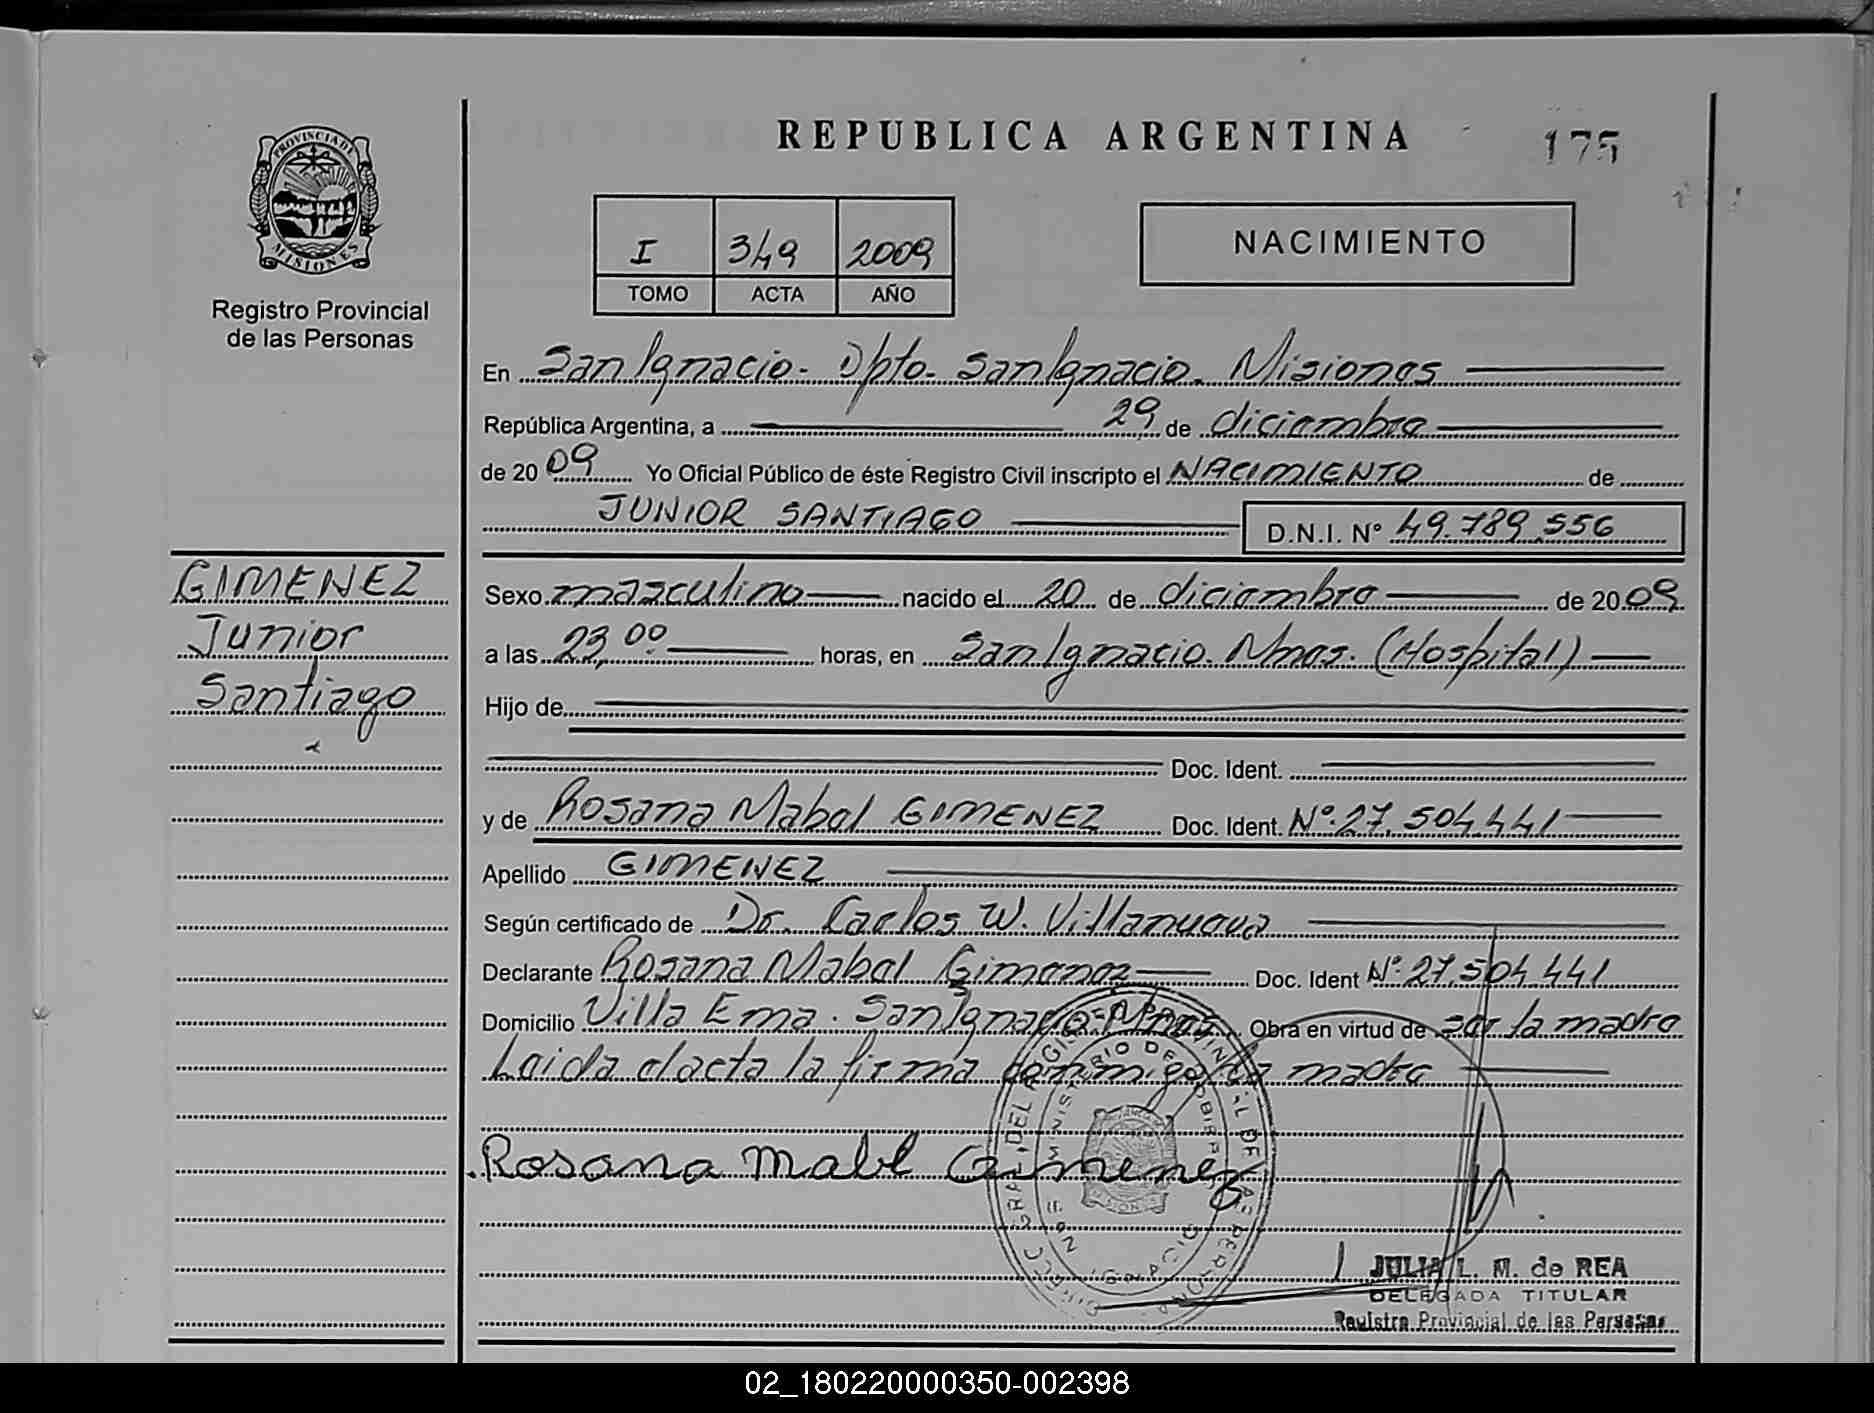 REPUBLICA ARGENTINA
175
PROVINCIA DE
MISIONES
Registro Provincial
de las Personas
I 349 2009
TOMO ACTA AÑO
NACIMIENTO
En San Ignacio - Dpto. San Ignacio. Misiones
República Argentina, a 29 de diciembre
de 2009 Yo Oficial Público de éste Registro Civil inscripto el NACIMIENTO de
JUNIOR SANTIAGO D.N.I. N° 49.789.556
GIMENEZ
Junior
Santiago
Sexo masculino nacido el 20 de diciembre de 2009
a las 23,00 horas, en San Ignacio. Mnes. (Hospital)
Hijo de
Doc. Ident.
y de Rosana Mabel GIMENEZ Doc. Ident. N°. 27.504.441
Apellido GIMENEZ
Según certificado de Dr. Carlos W. Villanueva
Declarante Rosana Mabel Gimenez Doc. Ident N°. 27.504.441
Domicilio Villa Ema. San Ignacio Mnes. Obra en virtud de ser la madre
Leida el acta la firma conmigo la madre
Rosana Mabel Gimenez
JULIA L. M. de REA
DELEGADA TITULAR
Registro Provincial de las Personas
02_180220000350-002398